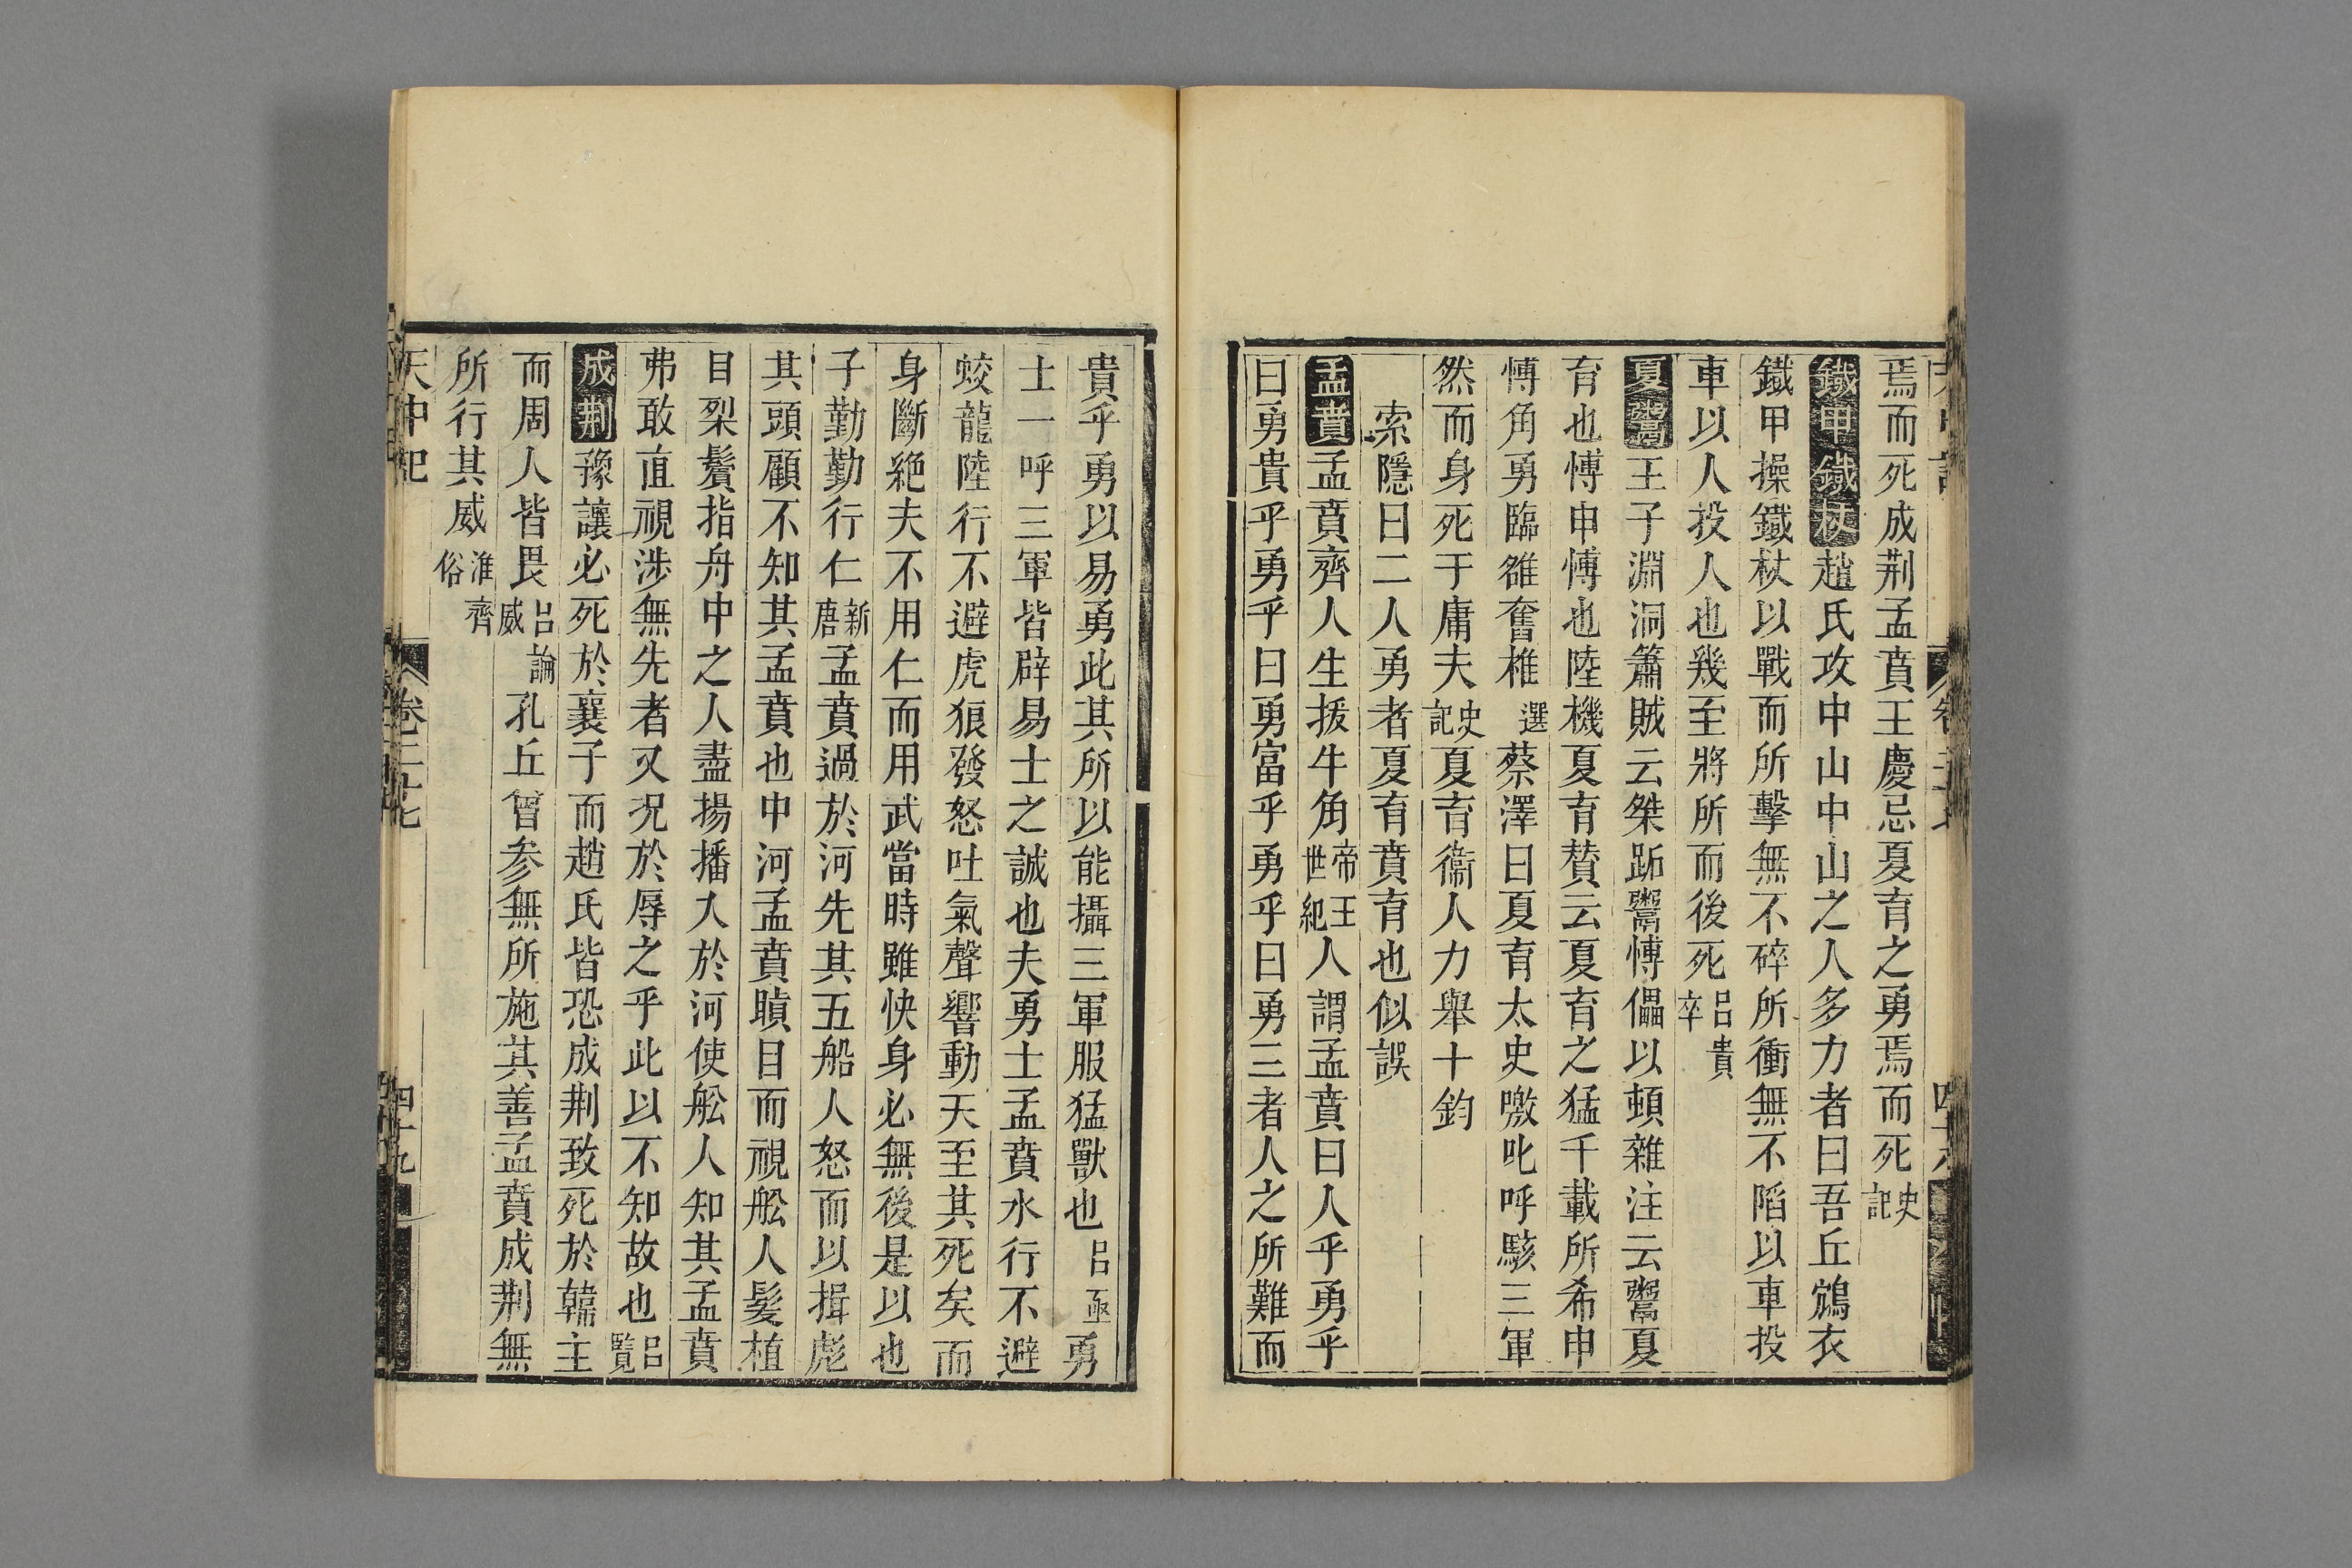 焉而死成荆孟賁王慶忌夏育之勇焉而死史記
鐵甲鐵杖趙氏攻中山中山之人多力者曰吾丘鴆衣
鐵甲操鐵杖以戰而所擊無不碎所衝無不陷以車投
車以人投人也幾至將所而後死呂貴卒
夏鬻王子淵洞簫賊云桀跖鬻愽儡以頓雜注云鬻夏
育也愽申愽也陸機夏育賛云夏育之猛千載所希申
愽角勇臨雒奮椎選蔡澤曰夏育太史噭叱呼駭三軍
然而身死于庸夫史記夏育衞人力舉十鈞
索隱曰二人勇者夏育賁育也似誤
孟賁孟賁齊人生拔牛角帝王世紀人謂孟賁曰人乎勇乎
曰勇貴乎勇乎曰勇富乎勇乎曰勇三者人之所難而
貴乎勇以易勇此其所以能攝三軍服猛獸也呂亟勇
士一呼三軍皆辟易士之誠也夫勇士孟賁水行不避
蛟龍陸行不避虎狼發怒吐氣聲響動天至其死矣而
身斷絶夫不用仁而用武當時雖快身必無後是以也
子勤勤行仁新唐孟賁過於河先其五船人怒而以揖彪
其頭顧不知其孟賁也中河孟賁瞋目而視舩人髪植
目裂鬢指舟中之人盡揚播入於河使舩人知其孟賁
弗敢直視涉無先者又况於辱之乎此以不知故也呂覽
成荆豫讓必死於襄子而趙氏皆恐成荆致死於韓主
而周人皆畏呂論威孔丘曾參無所施其善孟賁成荆無
所行其威淮齊俗
天中記 卷三十七 四十九